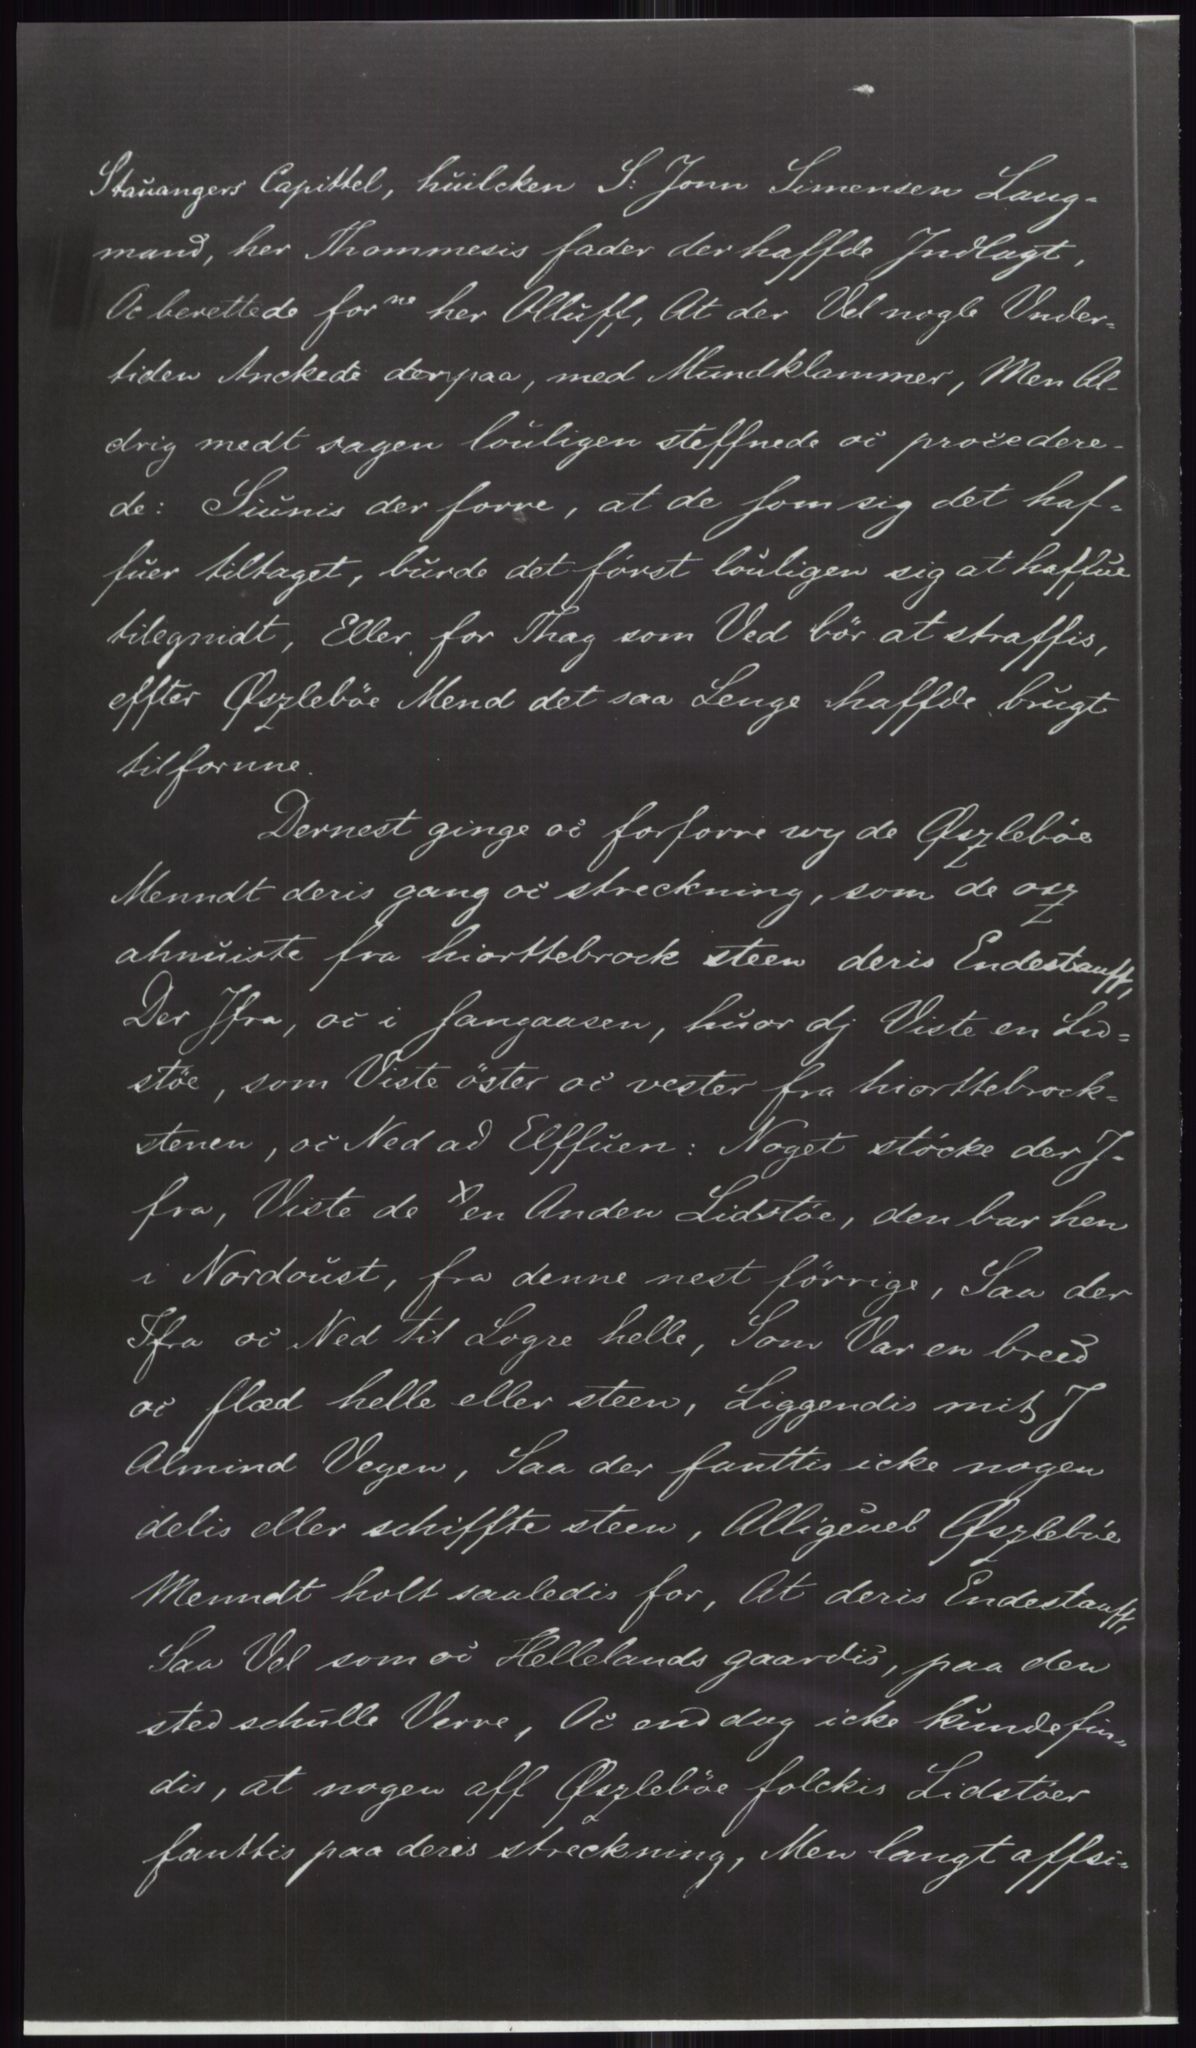 Stauangers Capittel, huilcken S: Jonn Simensen Laug-
mand, her Thommesis fader der haffde Indlagt,
Oc berettede for ne her Olluff, At der Vel nogle Vnder-
tiden Anckede derpaa, med Mundklammer, Men Al-
drig medt sagen louligen steffnede oc procedere-
de: Siunis der forre, at de som sig det haf-
fuer tiltaget, burde det först louligen sig at haffue
tilegnidt, Eller for Thag som Ved bör at straffis,
effter Øszleböe Mend det saa Lenge haffde brugt
tilfornne.
Dernest ginge oc forforre wy de Øszleböe
Menndt deris gang oc streckning, som de osz
ahnuiste fra hiorttebrock steen deris Endestauff,
Der Jfra, oc i Jangaasen, huor dj Viste en Lid-
stöe, som Viste öster oc vester fra hiorttebrock-
stenen, oc Ned ad Elffuen: Noget stöcke der J-
fra, Viste de en Anden Lidstöe, den bar hen
i Nordoust, fra denne nest förrige, Saa der
Ifra oc Ned til Logre helle, Som Var en breed
oc flad helle eller steen, Liggendis mit J
Almind Veyen, Saa der fanttis icke nogen
delis eller schiffte steen, Alligeuel Øszleböe
Menndt holt saaledis for, At deris Endestauff,
Saa Vel som oc Hellelands gaardis, paa den
sted schulle Verre, Oc end dog icke kunde fin-
dis, at nogen aff Øszleböe folckis Lidstöer
fanttis paa deris streckning, Men langt affsi-